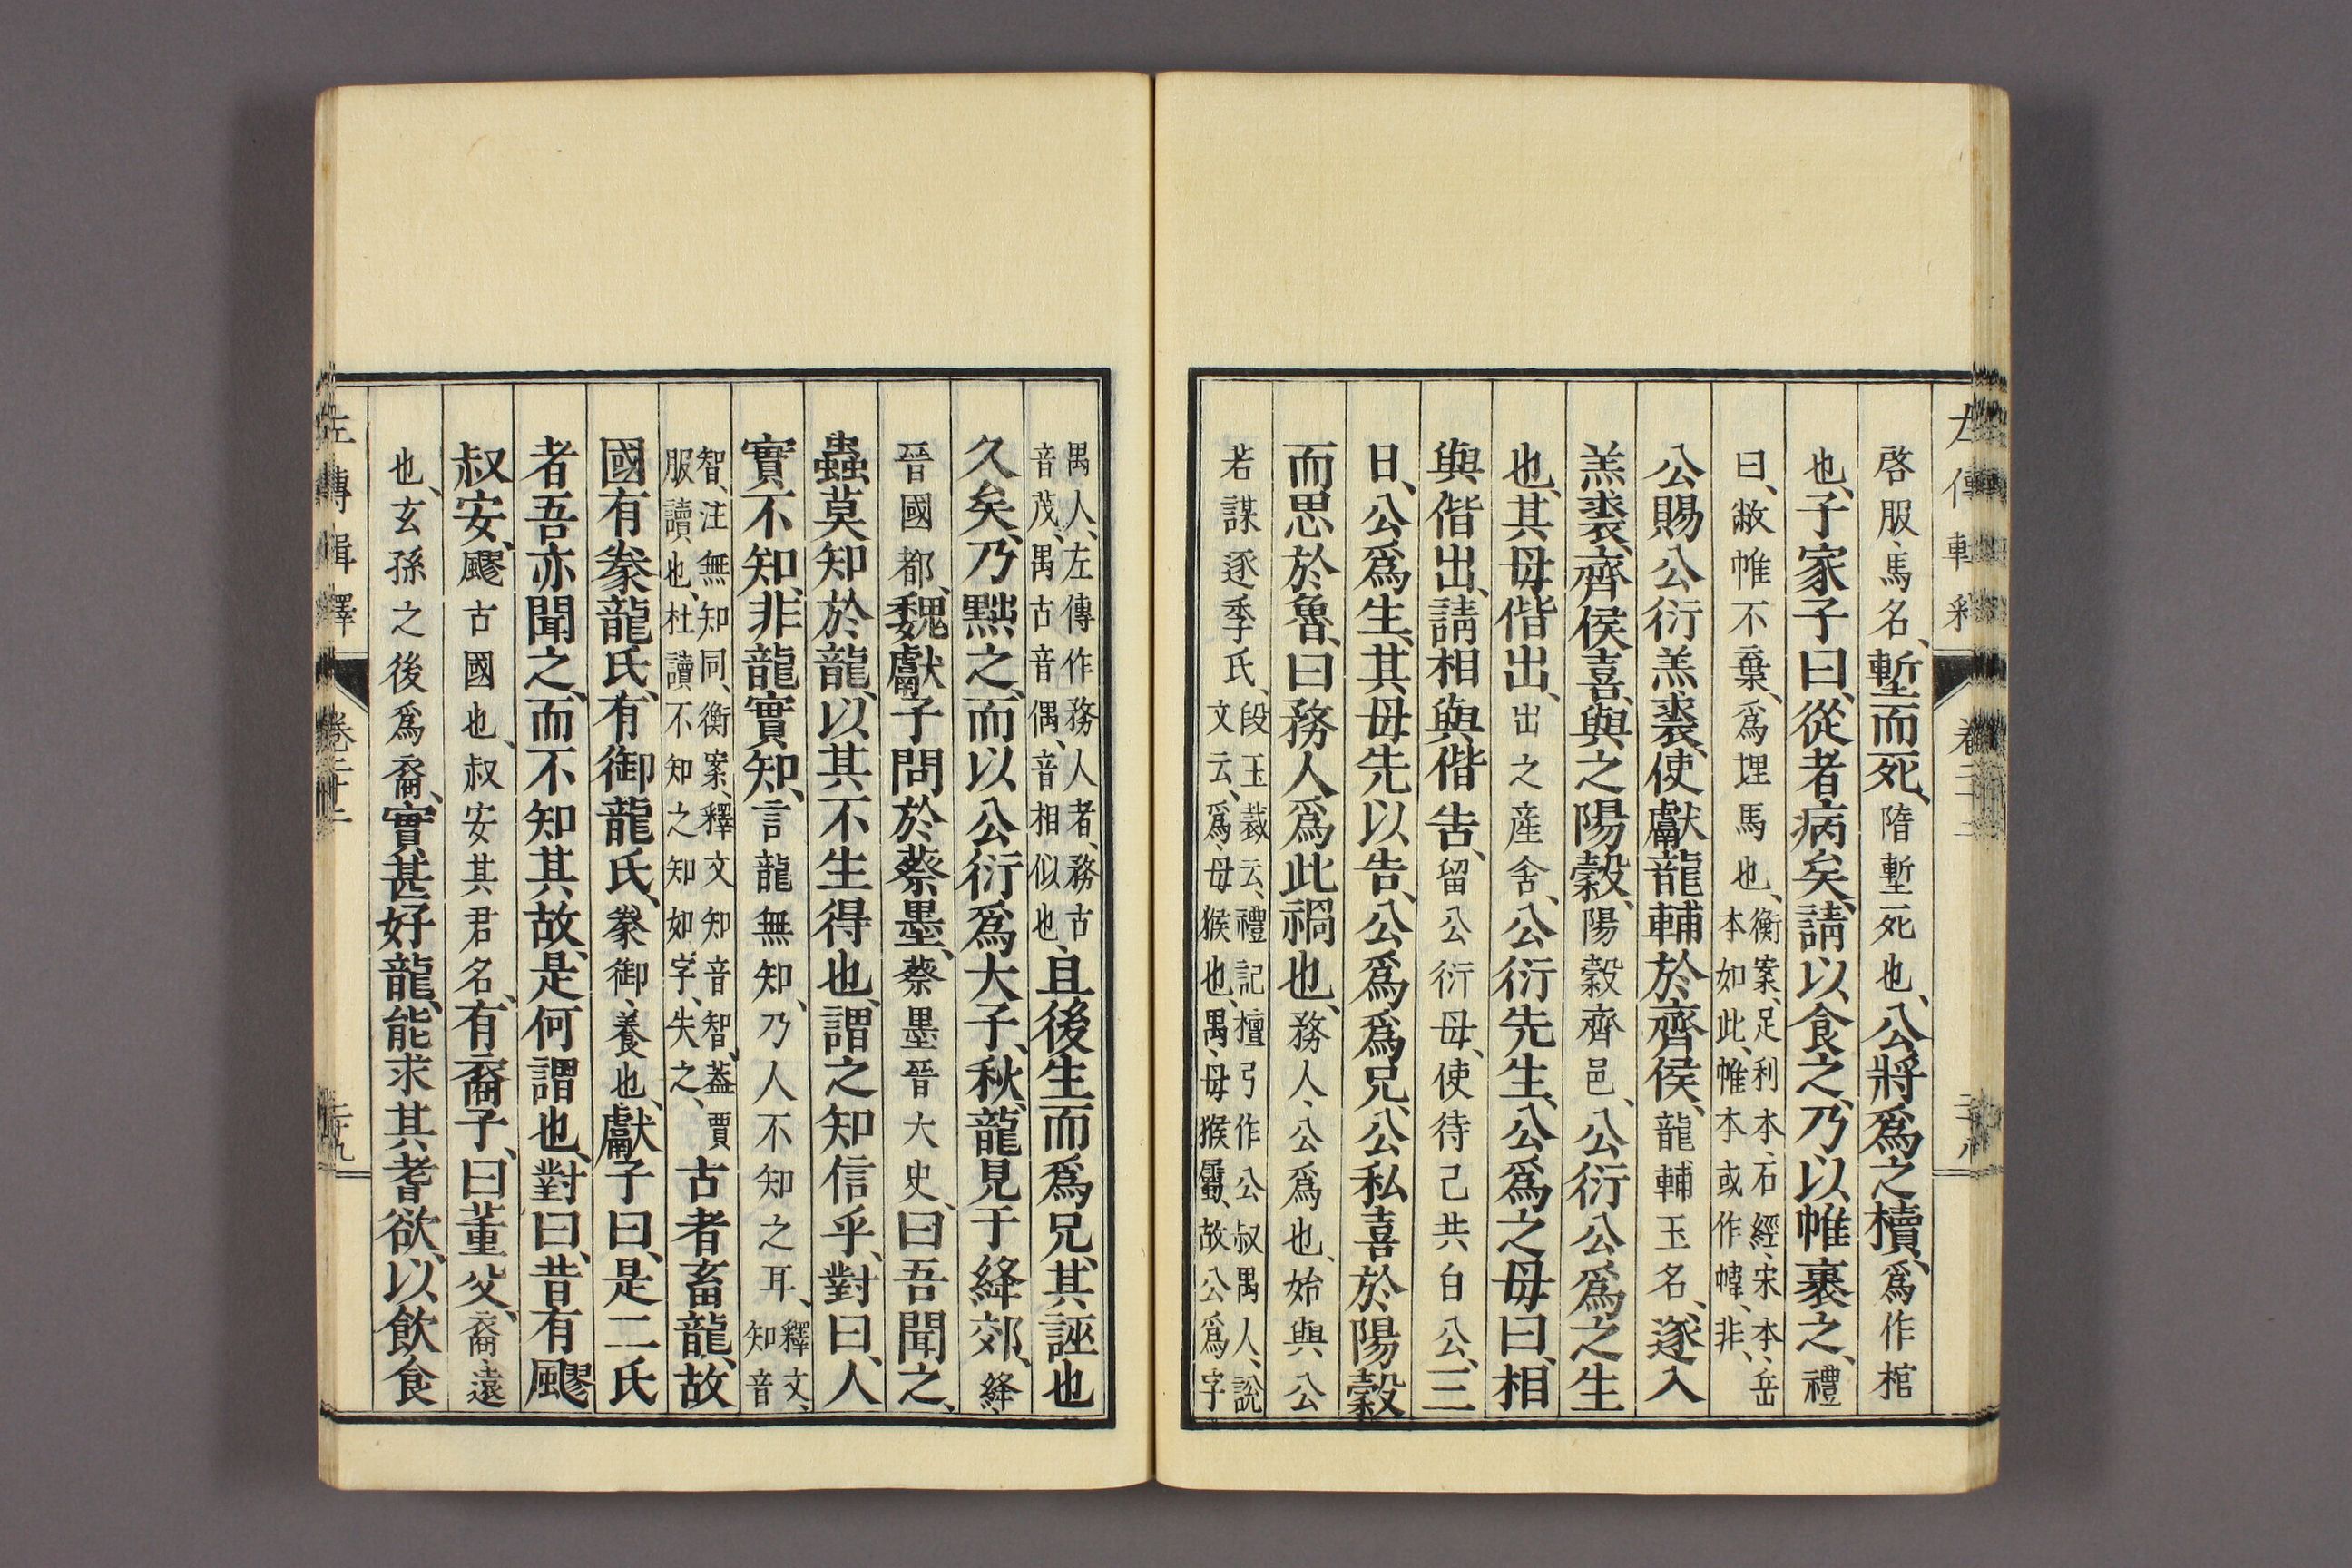 啓服、馬名、塹而死、隋塹死也、公將爲之櫝、爲作棺
也、子家子曰、從者病矣、請以食之、乃以帷裹之、禮
曰、敝帷不棄、爲埋馬也、衡案、足利本、石經、宋本、岳
本如此、帷本或作幃、非、
公賜公衍羔裘、使獻龍輔於齊侯、龍輔玉名、遂入
羔裘、齊侯喜、與之陽穀、陽穀齊邑、公衍公爲之生
也、其母偕出、出之産舍、公衍先生、公爲之母曰、相
與偕出、請相與偕告、留公衍母、使待己共白公、三
日、公爲生、其母先以告、公爲爲兄、公私喜於陽穀
而思於魯、曰務人爲此禍也、務人、公爲也、始與公
若謀逐季氏、段玉裁云、禮記檀弓作公叔禺人、說
文云、爲、母猴也、禺、母猴屬、故公爲字
禺人、左傳作務人者、務古
音茂、禺古音偶、音相似也、且後生而爲兄、其誣也
久矣、乃黜之、而以公衍爲大子、秋、龍見于絳郊、絳、
晉國都、魏獻子問於蔡墨、蔡墨晉大史、曰吾聞之、
蟲莫知於龍、以其不生得也、謂之知信乎、對曰、人
實不知、非龍實知、言龍無知、乃人不知之耳、釋文、
知音
智、注無知同、衡案、釋文知音智、蓋賈
服讀也、杜讀不知之知如字、失之、古者畜龍、故
國有豢龍氏、有御龍氏、豢御、養也、獻子曰、是二氏
者吾亦聞之、而不知其故、是何謂也、對曰、昔有飂
叔安、飂古國也、叔安其君名、有裔子、曰董父、裔、遠
也、玄孫之後爲裔、實甚好龍、能求其耆欲、以飲食
左傳輯釋 卷二十二 二十九